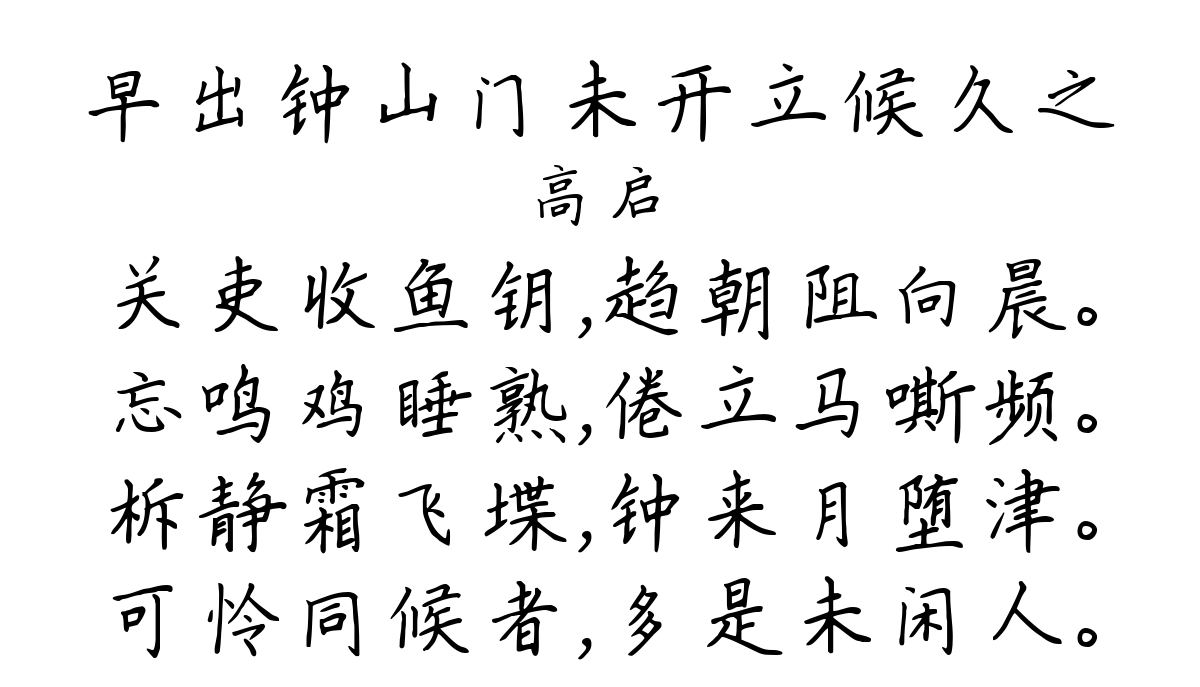 早出钟山门未开立候久之
高启
关吏收鱼钥,趋朝阻向晨。
忘鸣鸡睡熟,倦立马嘶频。
柝静霜飞堞,钟来月堕津。
可怜同候者,多是未闲人。